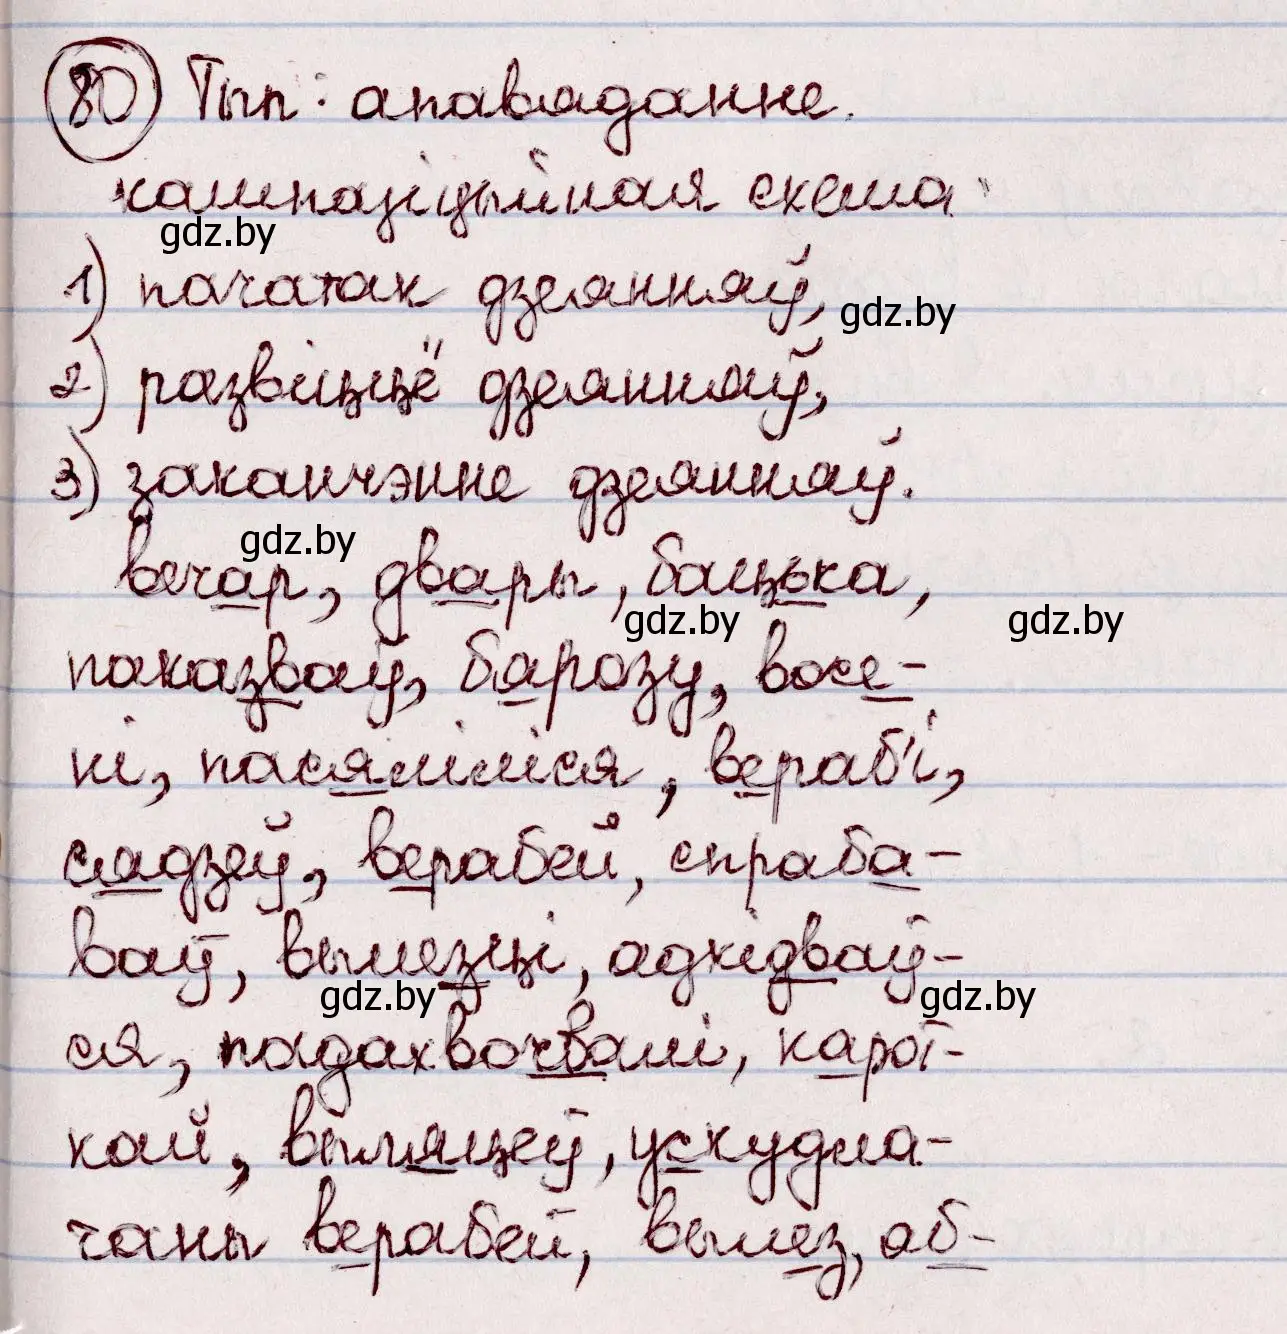 80 Тып: апавяданне.
кампазіцыйная схема:
gdz.by
1) пачатак дзеянняў,
gdz.by
2) развіццё дзеянняў,
3) заканчэнне дзеянняў.
gdz.by
вечар, двары, бацька,
gdz.by gdz.by
паказваў, бярозу, восе-
ні, пасяліліся, вераб'і,
сядзеў, верабей, спраба-
ваў, вылезці, адкідваў-
gdz.by gdz.by
ся, падахвочвалі, карот-
кай, выляцеў, ускудла-
чаны верабей, вылез, аб-